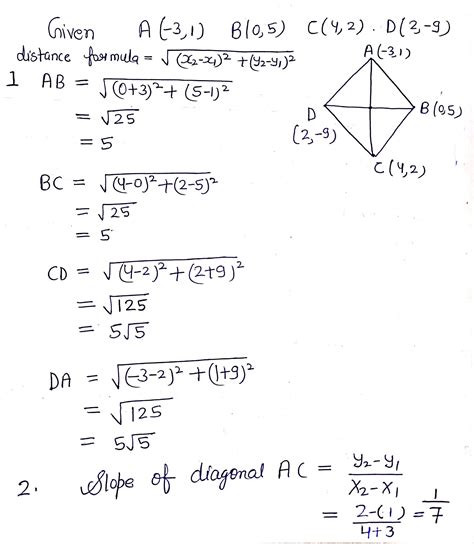 Given A(-3,1) B(0,5) C(4,2). D(2,-9)
distance formula = √(x₂-x₁)² + (y₂-y₁)²
A(-3,1)
B(0,5)
D
(2,-9)
C(4,2)
1 AB = √(0+3)² + (5-1)²
= √25
= 5
BC = √(4-0)² + (2-5)²
= √25
= 5
CD = √(4-2)² + (2+9)²
= √125
= 5√5
DA = √(-3-2)² + (1+9)²
= √125
= 5√5
2. Slope of diagonal AC = y₂-y₁ / x₂-x₁
= 2-(1) / 4+3 = 1/7